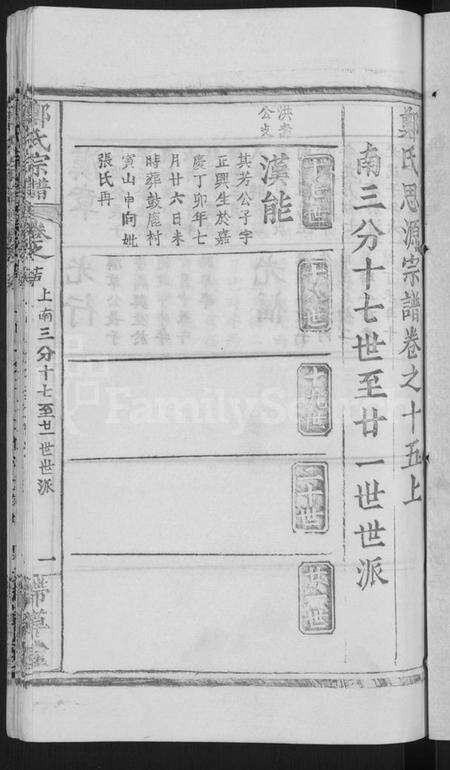 鄭氏思源宗譜卷之十五上
南三分十七世至廿一世世派
十七世
十八世
十九世
二十世
廿一世
公支
漢能
其芳公子字
正興生於嘉
慶丁卯年七
月廿六日未
時葬鼓應村
寅山申向妣
張氏再
鄭氏宗譜
上南三分十七至廿一世世派
一
FamilySearch